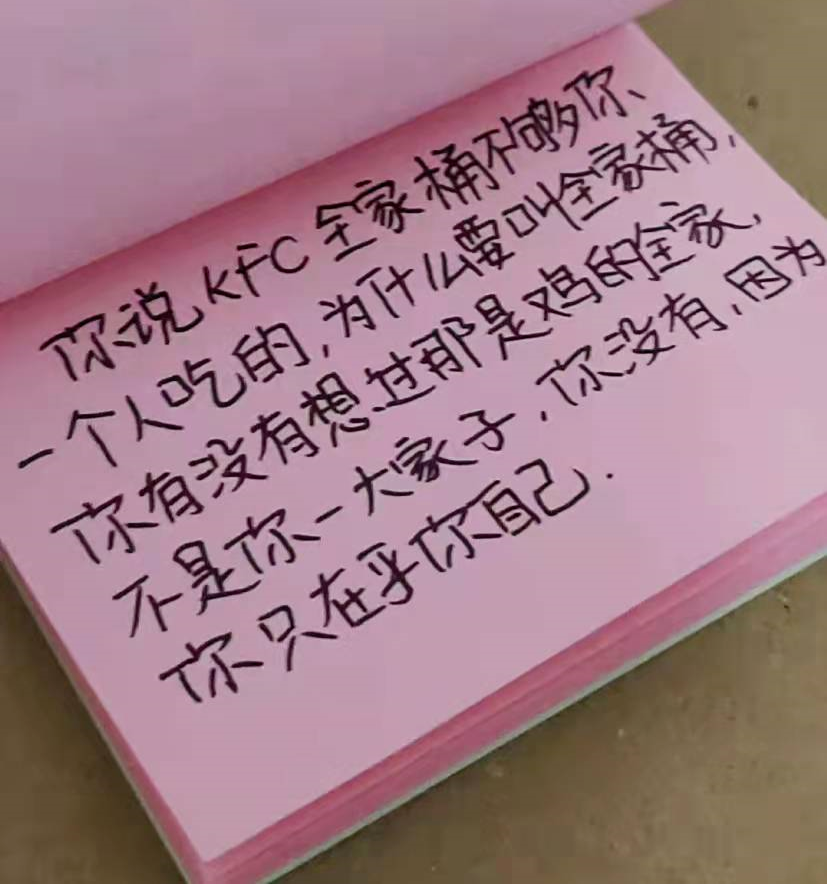 你说KFC全家桶不够你、
一个人吃的,为什么要叫全家桶,
你有没有想过那是鸡的全家,
不是你一大家子,你没有,因为
你只在乎你自己.